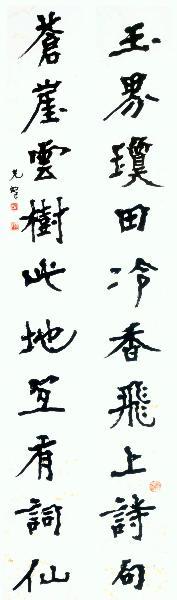 玉界瓊田冷香飛上詩句
蒼崖雲樹此地宜有詞仙